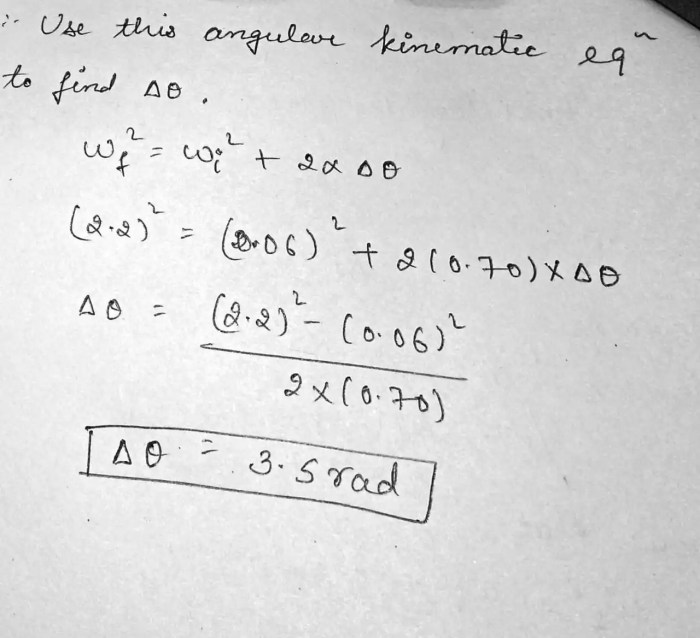 ∴ Use this angular kinematic eqⁿ
to find Δθ .
ω_f² = ω_i² + 2α Δθ
(2.2)² = (0.06)² + 2(0.70) × Δθ
Δθ = (2.2)² - (0.06)²
2 × (0.70)
Δθ = 3.5 rad